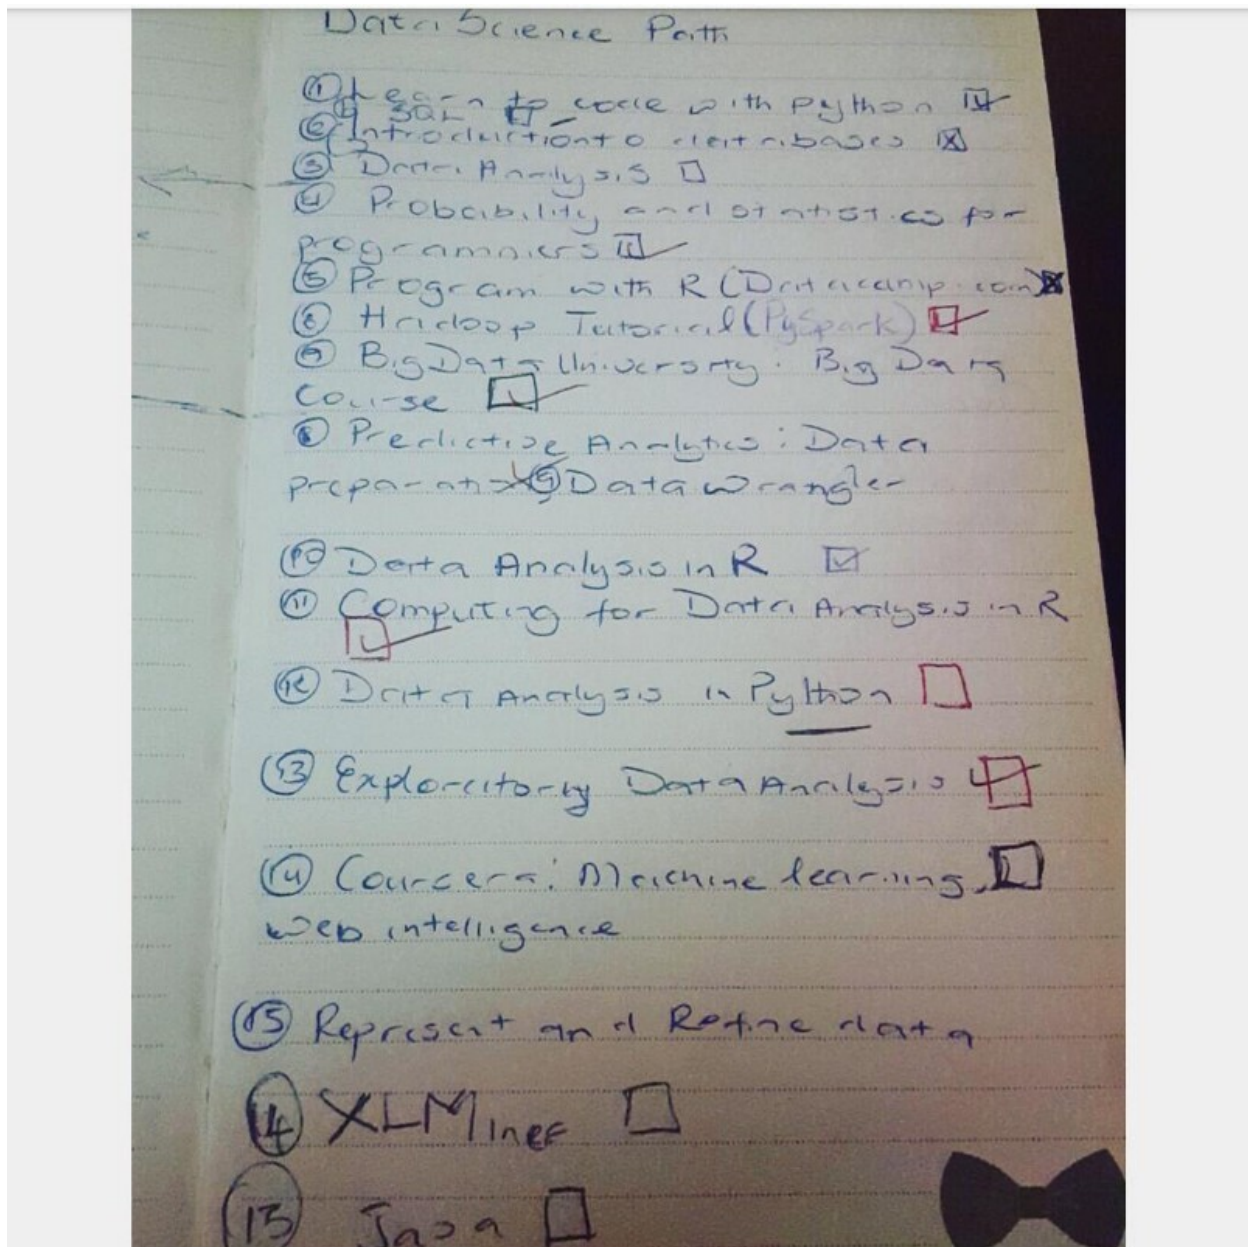 Data Science Path
① Learn to code with python
④ SQL
② Introduction to databases
③ Data Analysis
④ Probability and statistics for
programmers
⑤ Program with R (Datacamp.com)
⑥ Hadoop Tutorial (PySpark)
⑦ Big Data University: Big Data
Course
⑧ Predictive Analytics: Data
preparation ⑨ Data Wrangler
⑩ Data Analysis in R
⑪ Computing for Data Analysis in R
⑫ Data Analysis in Python
⑬ Exploratory Data Analysis
⑭ Courcera: Machine learning,
Web intelligence
⑮ Represent and Refine data
⑭ XLMiner
Java